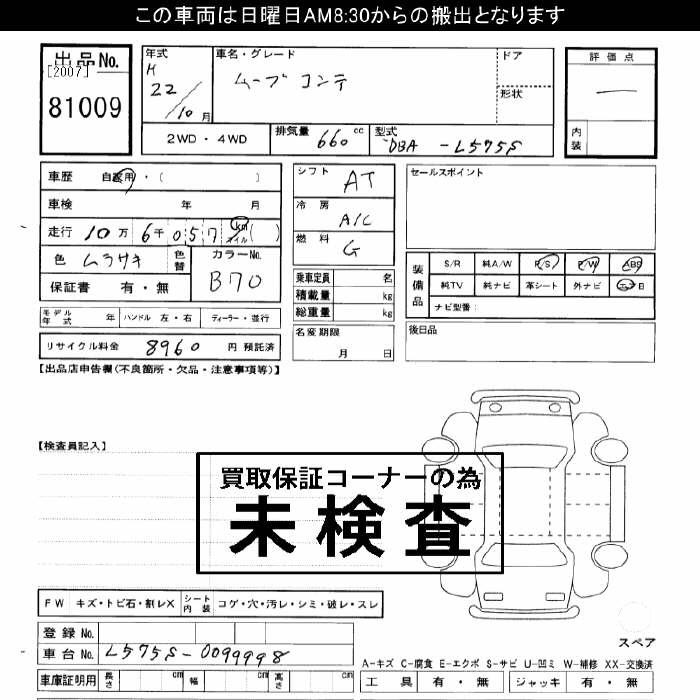 この車両は日曜日AM8:30からの搬出となります
出品No.
[2007]
81009
年式
H
22
/10 月
車名・グレード
ムーブ コンテ
ドア
形状
評価点
—
内装
2WD・4WD
排気量 660 cc
型式 DBA -L575S
車歴 自家用・( )
車検 年 月
走行 10万 6千 0 5 7 km マイル ( )
色 ムラサキ 色替
カラーNo.
B70
保証書 有・無
シフト AT
冷房 A/C
燃料 G
セールスポイント
乗車定員 名
積載量 kg
総重量 kg
装備品
S/R 純A/W P/S P/W ABS
純TV 純ナビ 革シート 外ナビ エアB
ナビ型番:
モデル年式 年 ハンドル 左・右 ディーラー・並行
名変期限
月 日
後日品
リサイクル料金 8960 円 預託済
【出品店申告欄(不良箇所・欠品・注意事項等)】
【検査員記入】
買取保証コーナーの為
未検査
FW キズ・トビ石・割レX シート内装 コゲ・穴・汚レ・シミ・破レ・スレ
登録No.
車台No. L575S-0099998
スペア
車庫証明用 長さ cm 幅 cm 高さ cm
A-キズ C-腐食 E-エクボ S-サビ U-凹ミ W-補修 XX-交換済
工具 有・無 ジャッキ 有・無